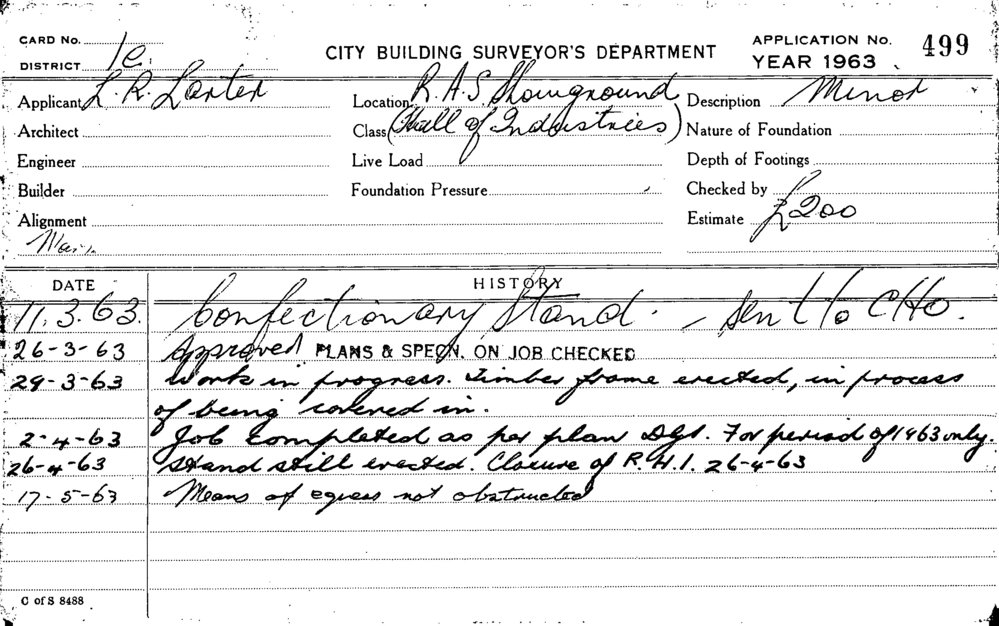 CARD No.
DISTRICT 1e.
CITY BUILDING SURVEYOR'S DEPARTMENT
APPLICATION No. 499
YEAR 1963
Applicant L. R. Larter
Location R.A.S. Showground
Description Minor
Architect
Class (Hall of Industries)
Nature of Foundation
Engineer
Live Load
Depth of Footings
Builder
Foundation Pressure
Checked by
Alignment
Estimate £200
DATE HISTORY
11.3.63. Confectionary Stand. – Sent to CHO.
26-3-63 Approved PLANS & SPECN. ON JOB CHECKED
29-3-63 Work in progress. Timber frame erected, in process
of being covered in.
2-4-63 Job completed as per plan Dgt. For period of 1963 only.
26-4-63 Stand still erected. Closure of R.H.I. 26-4-63
17-5-63 Means of egress not obstructed
C of S 8488